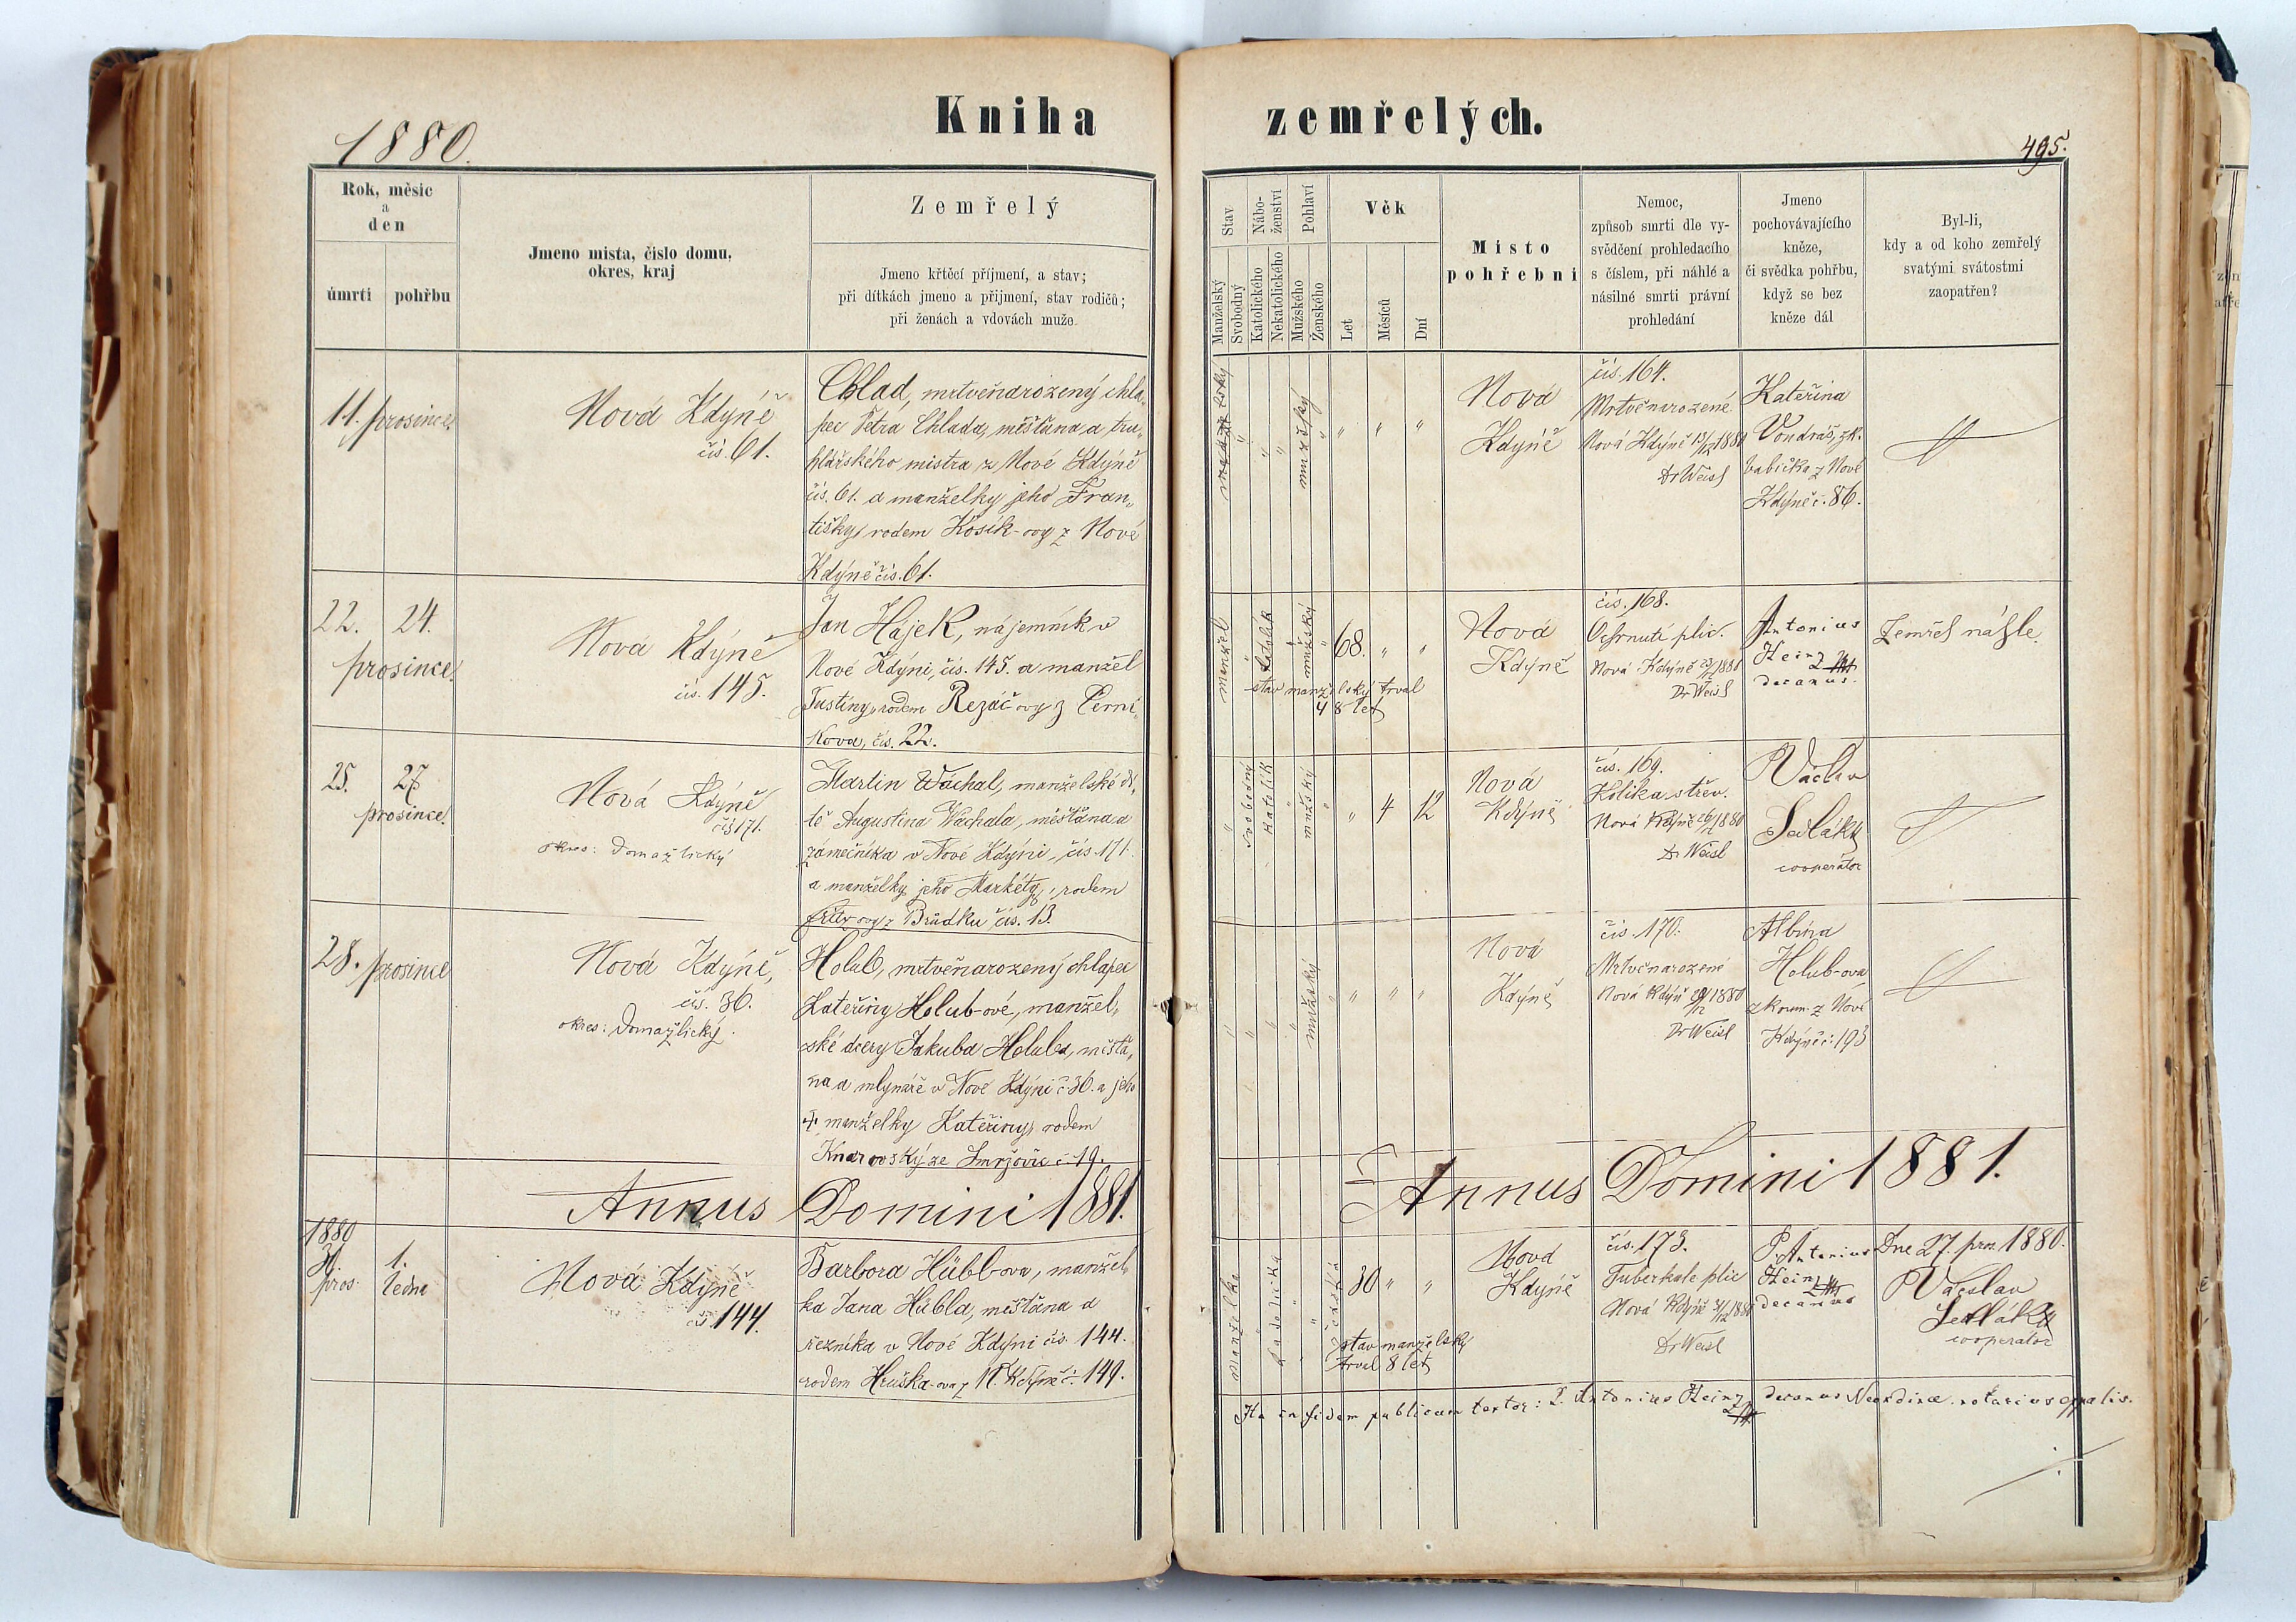 Kniha zemřelých.
1880.
495.
Rok, měsic
a
den
úmrti
pohřbu
Jmeno mista, čislo domu,
okres, kraj
Zemřelý
Jmeno křtěcí příjmení, a stav;
při dítkách jmeno a přijmení, stav rodičů;
při ženách a vdovách muže
Stav
Manželský
Svobodný
Nábo-
ženství
Katolického
Nekatolického
Pohlaví
Mužského
Ženského
Věk
Let
Měsíců
Dní
Místo
pohřebni
Nemoc,
způsob smrti dle vy-
svědčení prohledacího
s číslem, při náhlé a
násilné smrti právní
prohledání
Jmeno
pochovávajícího
kněze,
či svědka pohřbu,
když se bez
kněze dál
Byl-li,
kdy a od koho zemřelý
svatými svátostmi
zaopatřen?
11. prosince.
Nová Kdýně
čís. 61.
Chlad, mrtvěnarozený chla„
pec Petra Chlada, měšťana a tru„
hlářského mistra z Nové Kdýně
čís. 61. a manželky jeho Fran„
tišky, rodem Kosík-ovy z Nové
Kdýně čís. 61.
mužský
" " "
Nová
Kdýně
čís. 164.
Mrtvěnarozené
Nová Kdýně 13/12 1880
Dr Weisl
Kateřina
Vondráš, zk.
babička z Nové
Kdýně č. 86.
22. 24.
prosince.
Nová Kdýně
čís. 145.
Jan Hájek, nájemník v
Nové Kdýni, čís. 145. a manžel
Justiny, rodem Rezáč-ovy z Černí„
kova, čís. 22.
manžel
katolík
mužský
68. " "
stav manželský trval
48 let
Nová
Kdýně
čís. 168.
Ochrnutí plic.
Nová Kdýně 23/12 1881
Dr Weisl
Antonius
Heinz
decanus.
Zemřel náhle.
25. 27
prosince.
Nová Kdýně
čís 171.
okres: Domažlický
Martin Wáchal, manželské dí„
tě Augustina Wáchala, měšťana a
zámečníka v Nové Kdýni, čís. 171.
a manželky jeho Markéty, rodem
z Brůdku čís. 13.
svobodný
katolík
mužský
" 4 12
Nová
Kdýně
čís. 169.
Kolika střev.
Nová Kdýně 26/12 1880
Dr Weisl
Václav
Sedlák
cooperátor
28. prosince
Nová Kdýně,
čís. 36.
okres: Domažlický.
Holub, mrtvěnarozený chlapec
Kateřiny Holub-ové, manžel„
ské dcery Jakuba Holuba, měšťa„
na a mlynáře v Nové Kdýni č. 36. a jeho
+ manželky Kateřiny, rodem
ze Smržovic č. 19.
mužský
" " "
Nová
Kdýně
čís. 170.
Mrtvěnarozené
Nová Kdýně 29/12 1880
Dr Weisl
Albína
Holub-ova
zkoum. z Nové
Kdýně č. 193
Annus Domini 1881.
Annus Domini 1881.
1880
pros.
1.
ledna
Nová Kdýně
čís. 144.
Barbora Hübl-ova, manžel„
ka Jana Hübla, měšťana a
řezníka v Nové Kdýni čís. 144.
rodem Hruška-ova z N. Kdýně č. 149.
manželka
30 " "
stav manželský
trval 8 let
Nová
Kdýně
čís. 173.
Tuberkule plic
Nová Kdýně 31/12 1880
Dr Weisl
P. Antonius
Heinz
decanus
Dne 27. pros. 1880.
Václav
Sedlák
cooperator
Ita in fidem publicam testor: P. Antonius Heinz decanus Neokdinae. notarius eppalis.